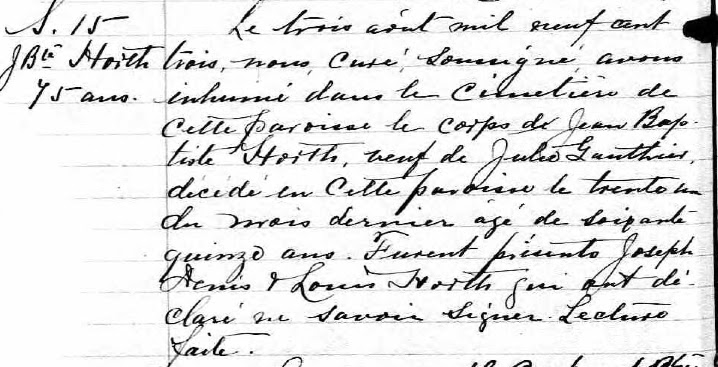 S. 15
JBte Horth
75 ans.
Le trois août mil neuf cent
trois, nous, Curé, soussigné, avons
inhumé dans le Cimetière de
Cette paroisse le corps de Jean Bap-
tiste Horth, veuf de Julie Gauthier,
décédé en Cette paroisse le trente un
du mois dernier âgé de soixante
quinze ans. Furent présents Joseph
Denis & Louis Horth qui ont dé-
claré ne savoir signer. Lecture
faite.